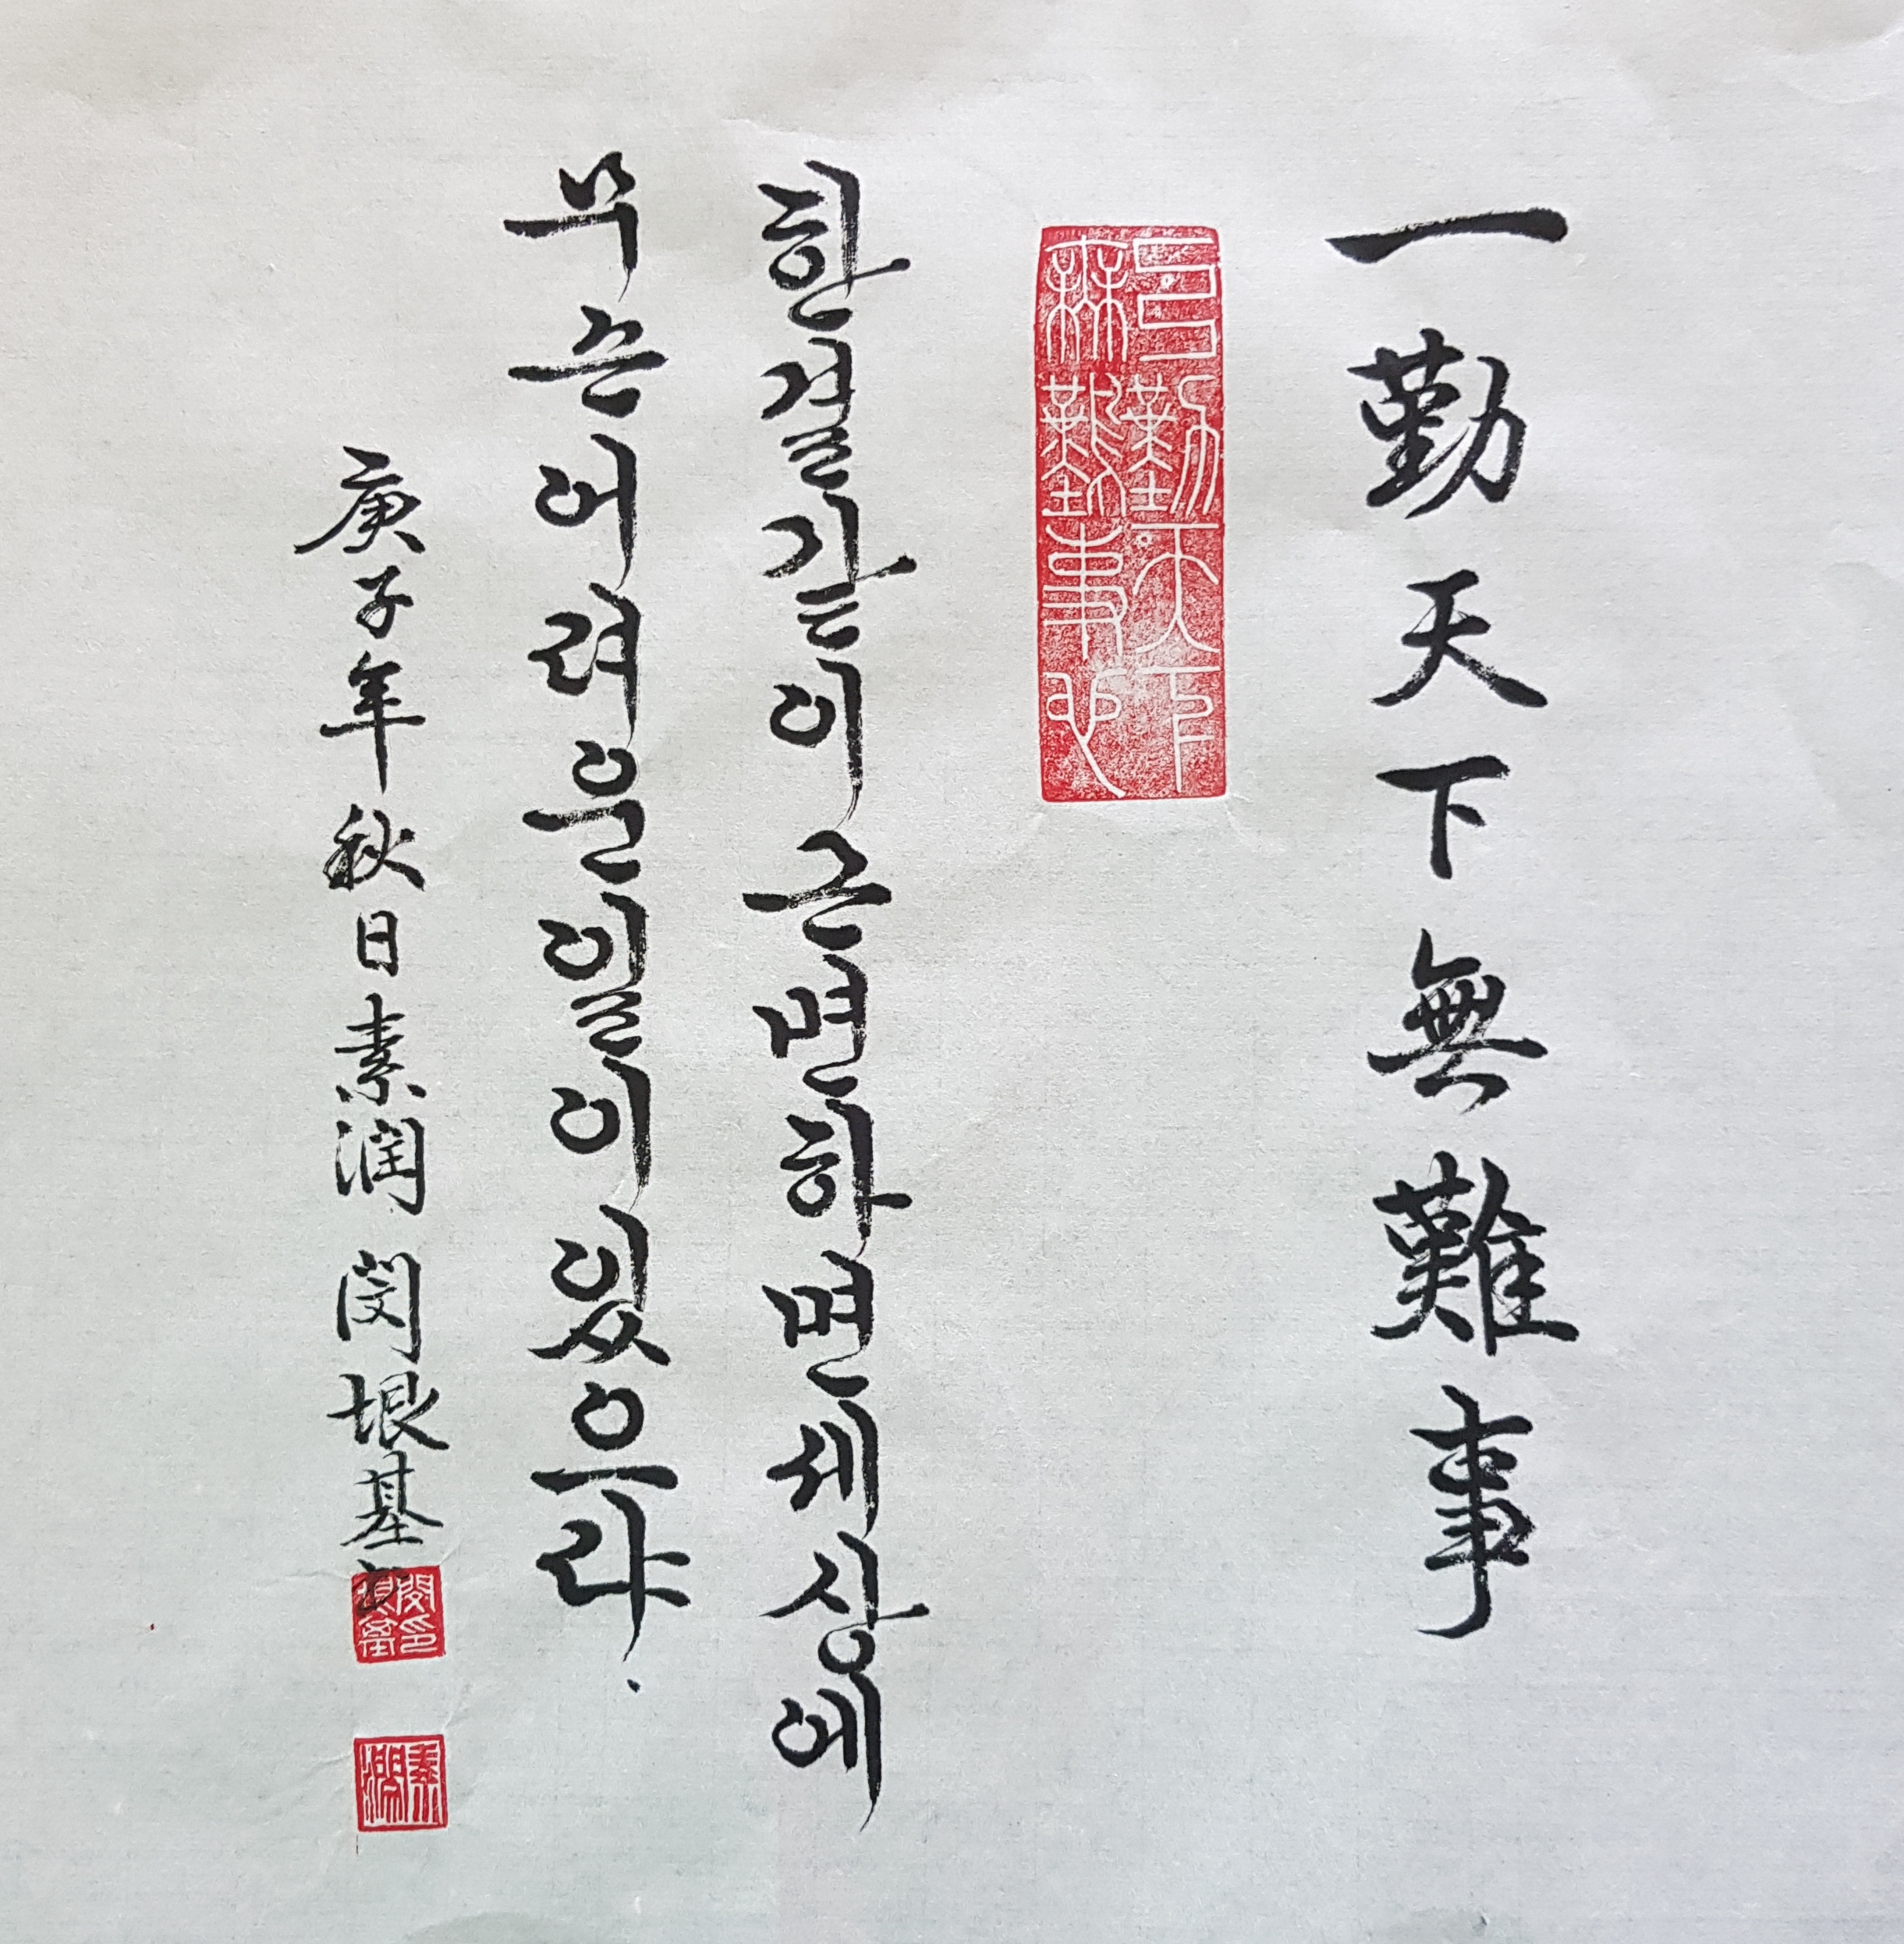 一勤天下無難事
勤天下
無難事
한결같이근면하면세상에
무슨어려운일이있으랴.
庚子年秋日素潤 閔垠基
素潤